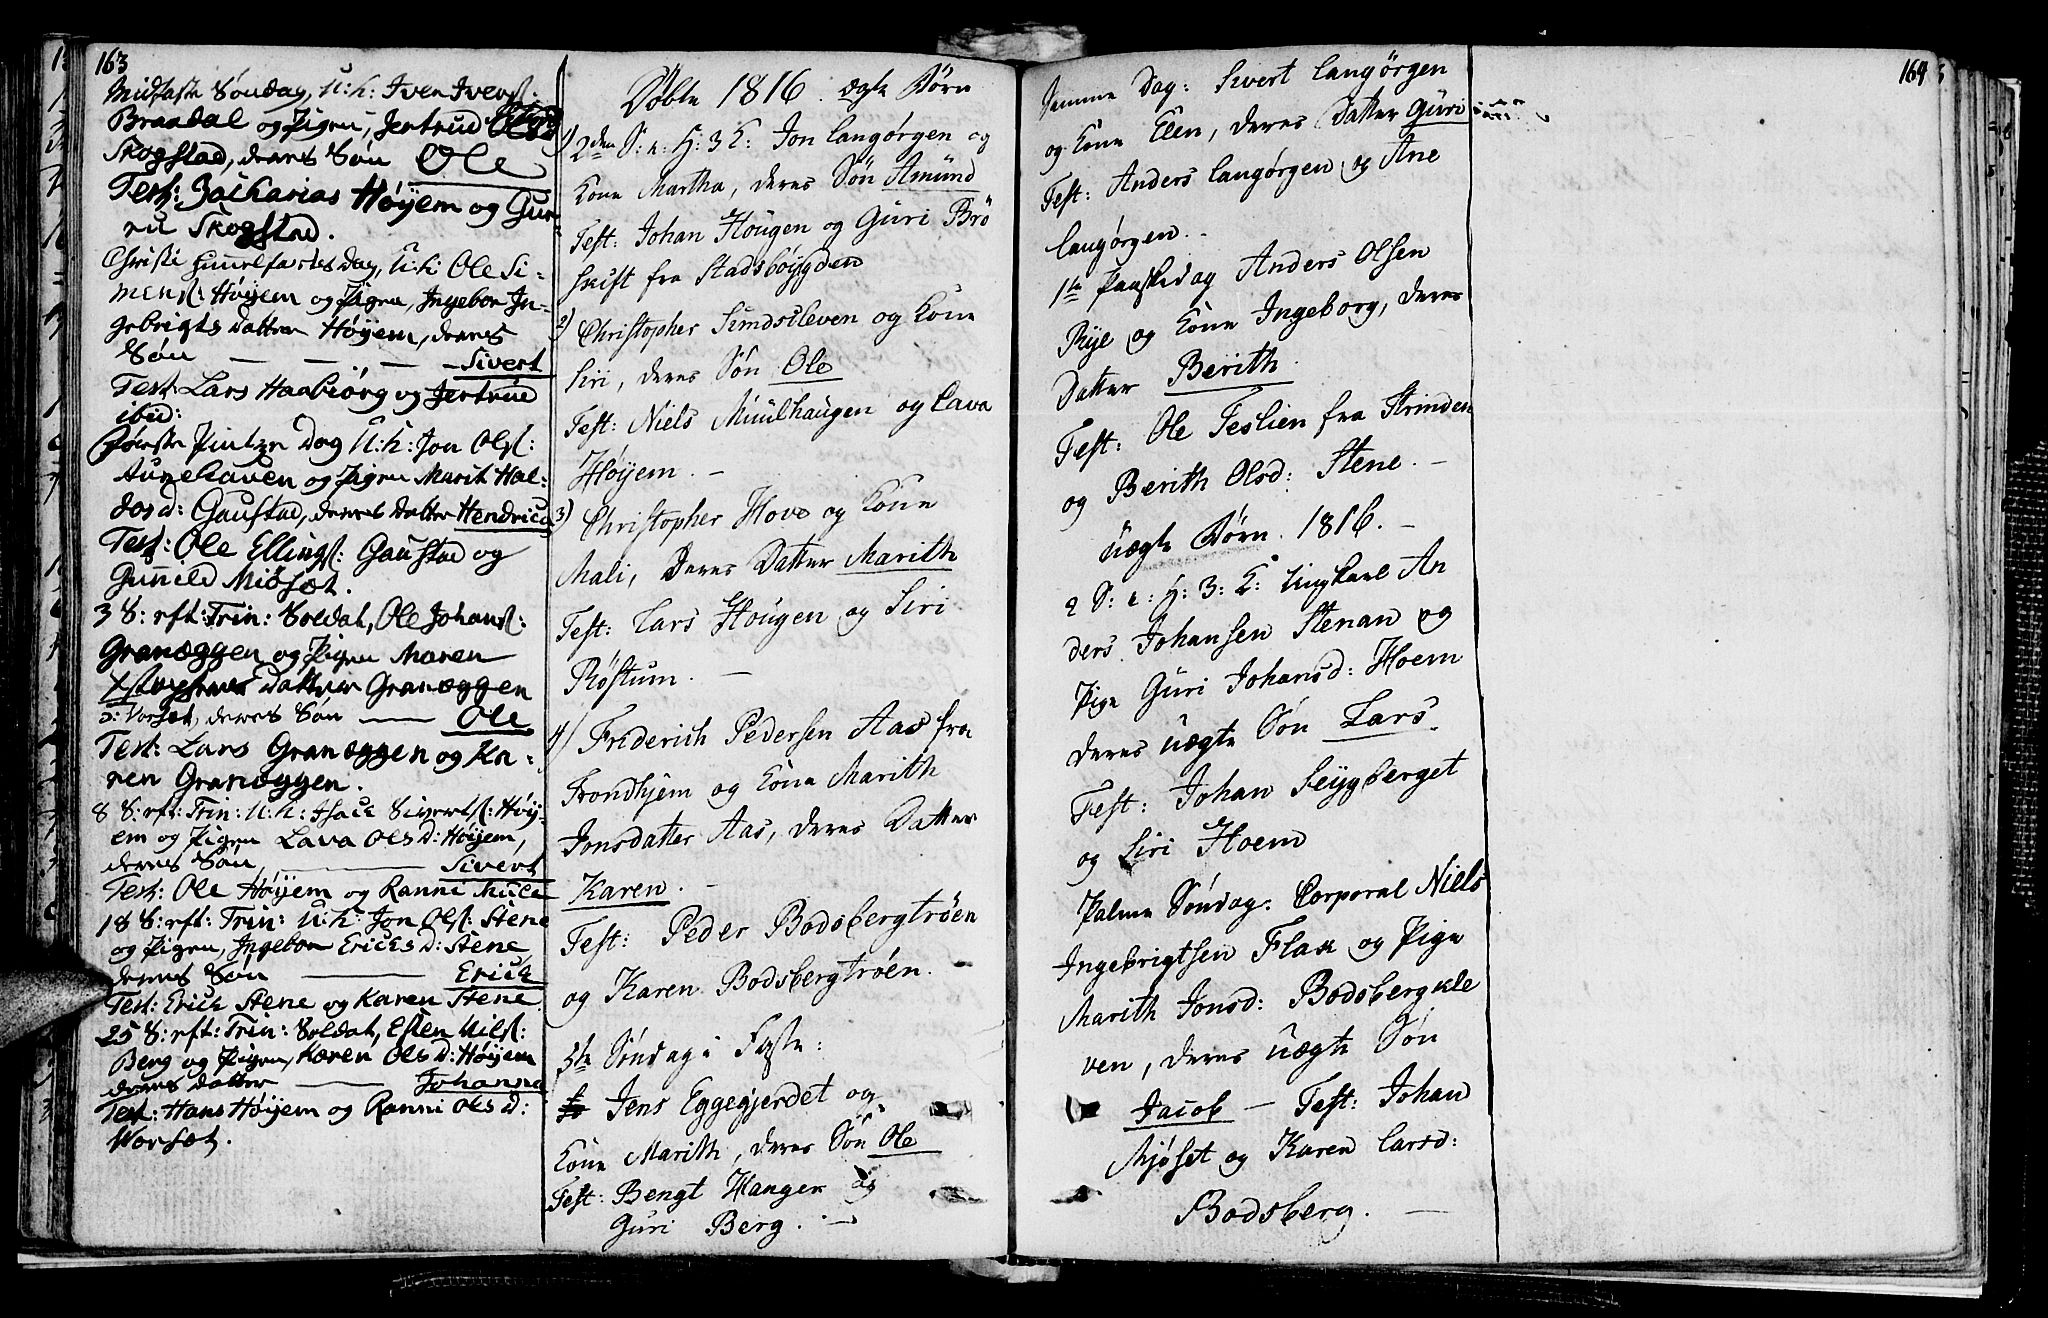 163
Midfaste Søndag, U: k: Iver Iversl:
Braadal og Pigen, Jertrud Olsd
Skogstad, deres Søn Ole
Test: Zacharias Høÿem og Gur-
ru Skogstad.
Christi Himmelfartes Dag, U: k: Ole Si-
mensl: Høÿem og Pigen, Ingebor In-
gebrigts Datter Høÿem, deres
Søn — — — Sivert
Test: Lars Haabiörg og Jertrud
ibid:
Første Pintze Dag U: k: Jon Olsl:
Aunehaven og Pigen Marit Hal-
dosd: Gaustad, deres Datter Hendrica
Test: Ole Ellingsl: Gaustad og
Gunnild Miösæt.
3 S: eft: Trin: Soldat, Ole Johansl:
Granæggen og Pigen Maren
Datter Granæggen
o: Vorset, deres Søn — Ole
Test: Lars Granæggen og Ka-
ren Granæggen.
8 S: eft: Trin: U: k: Isack Sivertsl: Høÿ-
em og Pigen Lava Olsd: Høÿem,
deres Søn — Sivert
Test: Ole Høÿem og Ranni Mule
18 S: eft: Trin: U: k: Jon Olsl: Stene
og Pigen, Ingebor Ericksd: Stene,
deres Søn — Erick
Test: Erick Stene og Karen Stene
25 S: eft: Trin: Soldat, Esten Nilsl:
Berg og Pigen, Karen Olsd: Høÿem
deres Datter — Johanna
Test: Hans Høÿem og Ranni Olsd:
Worsæt.
Døbte 1816. ægte Børn
1) 2den S: e: H: 3 K: Jon Langørgen og
Kone Martha, deres Søn Amund
Test: Johan Hougen og Guri Brö
skift fra Stadsböÿgden
2) Christopher Sundsleven og Kone
Siri, deres Søn Ole
Test: Niels Muulhaugen og Lava
Høÿem. —
3) Christopher Hove og Kone
Mali, deres Datter Marith
Test: Lars Hougen og Siri
Röstum. —
4) Friderich Pedersen Aas fra
Trondhjem og Kone Marith
Jonsdatter Aas, deres Datter
Karen. —
Test: Peder Bodsbergtröen
og Karen Bodsbergtröen.
3te Søndag i Faste:
Jens Eggegjerdet og
Kone Marith, deres Søn Ole
Test: Bengt Hanger og
Guri Berg. —
164
Samme Dag: Sivert Langörgen
og Kone Elen, deres Datter Guri
Test: Anders Langørgen og Ane
Langørgen. -
1te Paaskedag Anders Olsen
Rÿe og Kone Ingeborg, deres
Datter Berith.
Test: Ole Teslien fra Strinden
og Berith Olsd: Stene. —
uægte Børn. 1816. —
2 S: e: H: 3: K: Ungkarl An
ders Johansen Stenan og
Pige Guri Johansd: Hoem
deres uægte Søn Lars.
Test: Johan Leÿgberget
og Siri Hoem
Palme Søndag: Corporal Niels
Ingebrigtsen Flaa og Pige
Marith Jonsd: Bodsbergkle
ven, deres uægte Søn
Jacob — Test: Johan
Mjöset og Karen Larsd:
Bodsberg. —